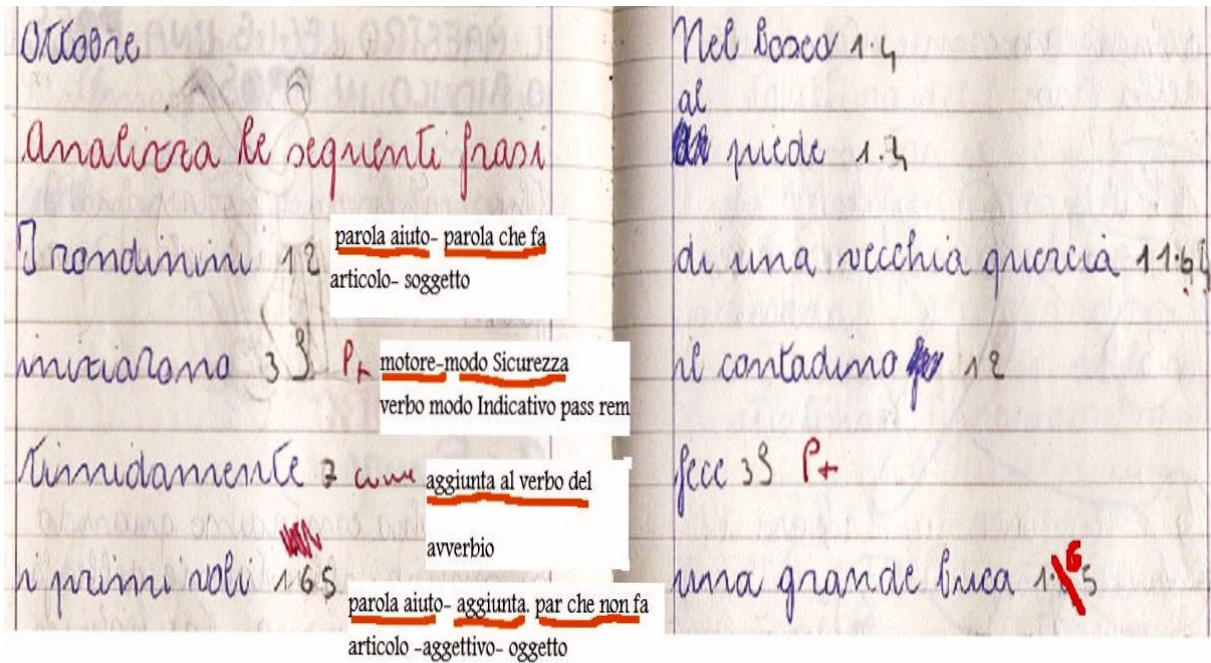 Ottobre
Analizza le seguenti frasi
I rondinini 12
parola aiuto- parola che fa
articolo- soggetto
iniziarono 3S P+
motore-modo Sicurezza
verbo modo Indicativo pass rem
timidamente 7 come
aggiunta al verbo del
avverbio
i primi voli 165
parola aiuto- aggiunta. par che non fa
articolo -aggettivo- oggetto
Nel bosco 1.4
al
piede 1.4
di una vecchia quercia 11.64
il contadino 12
fece 3S P+
una grande buca 1. 6 5